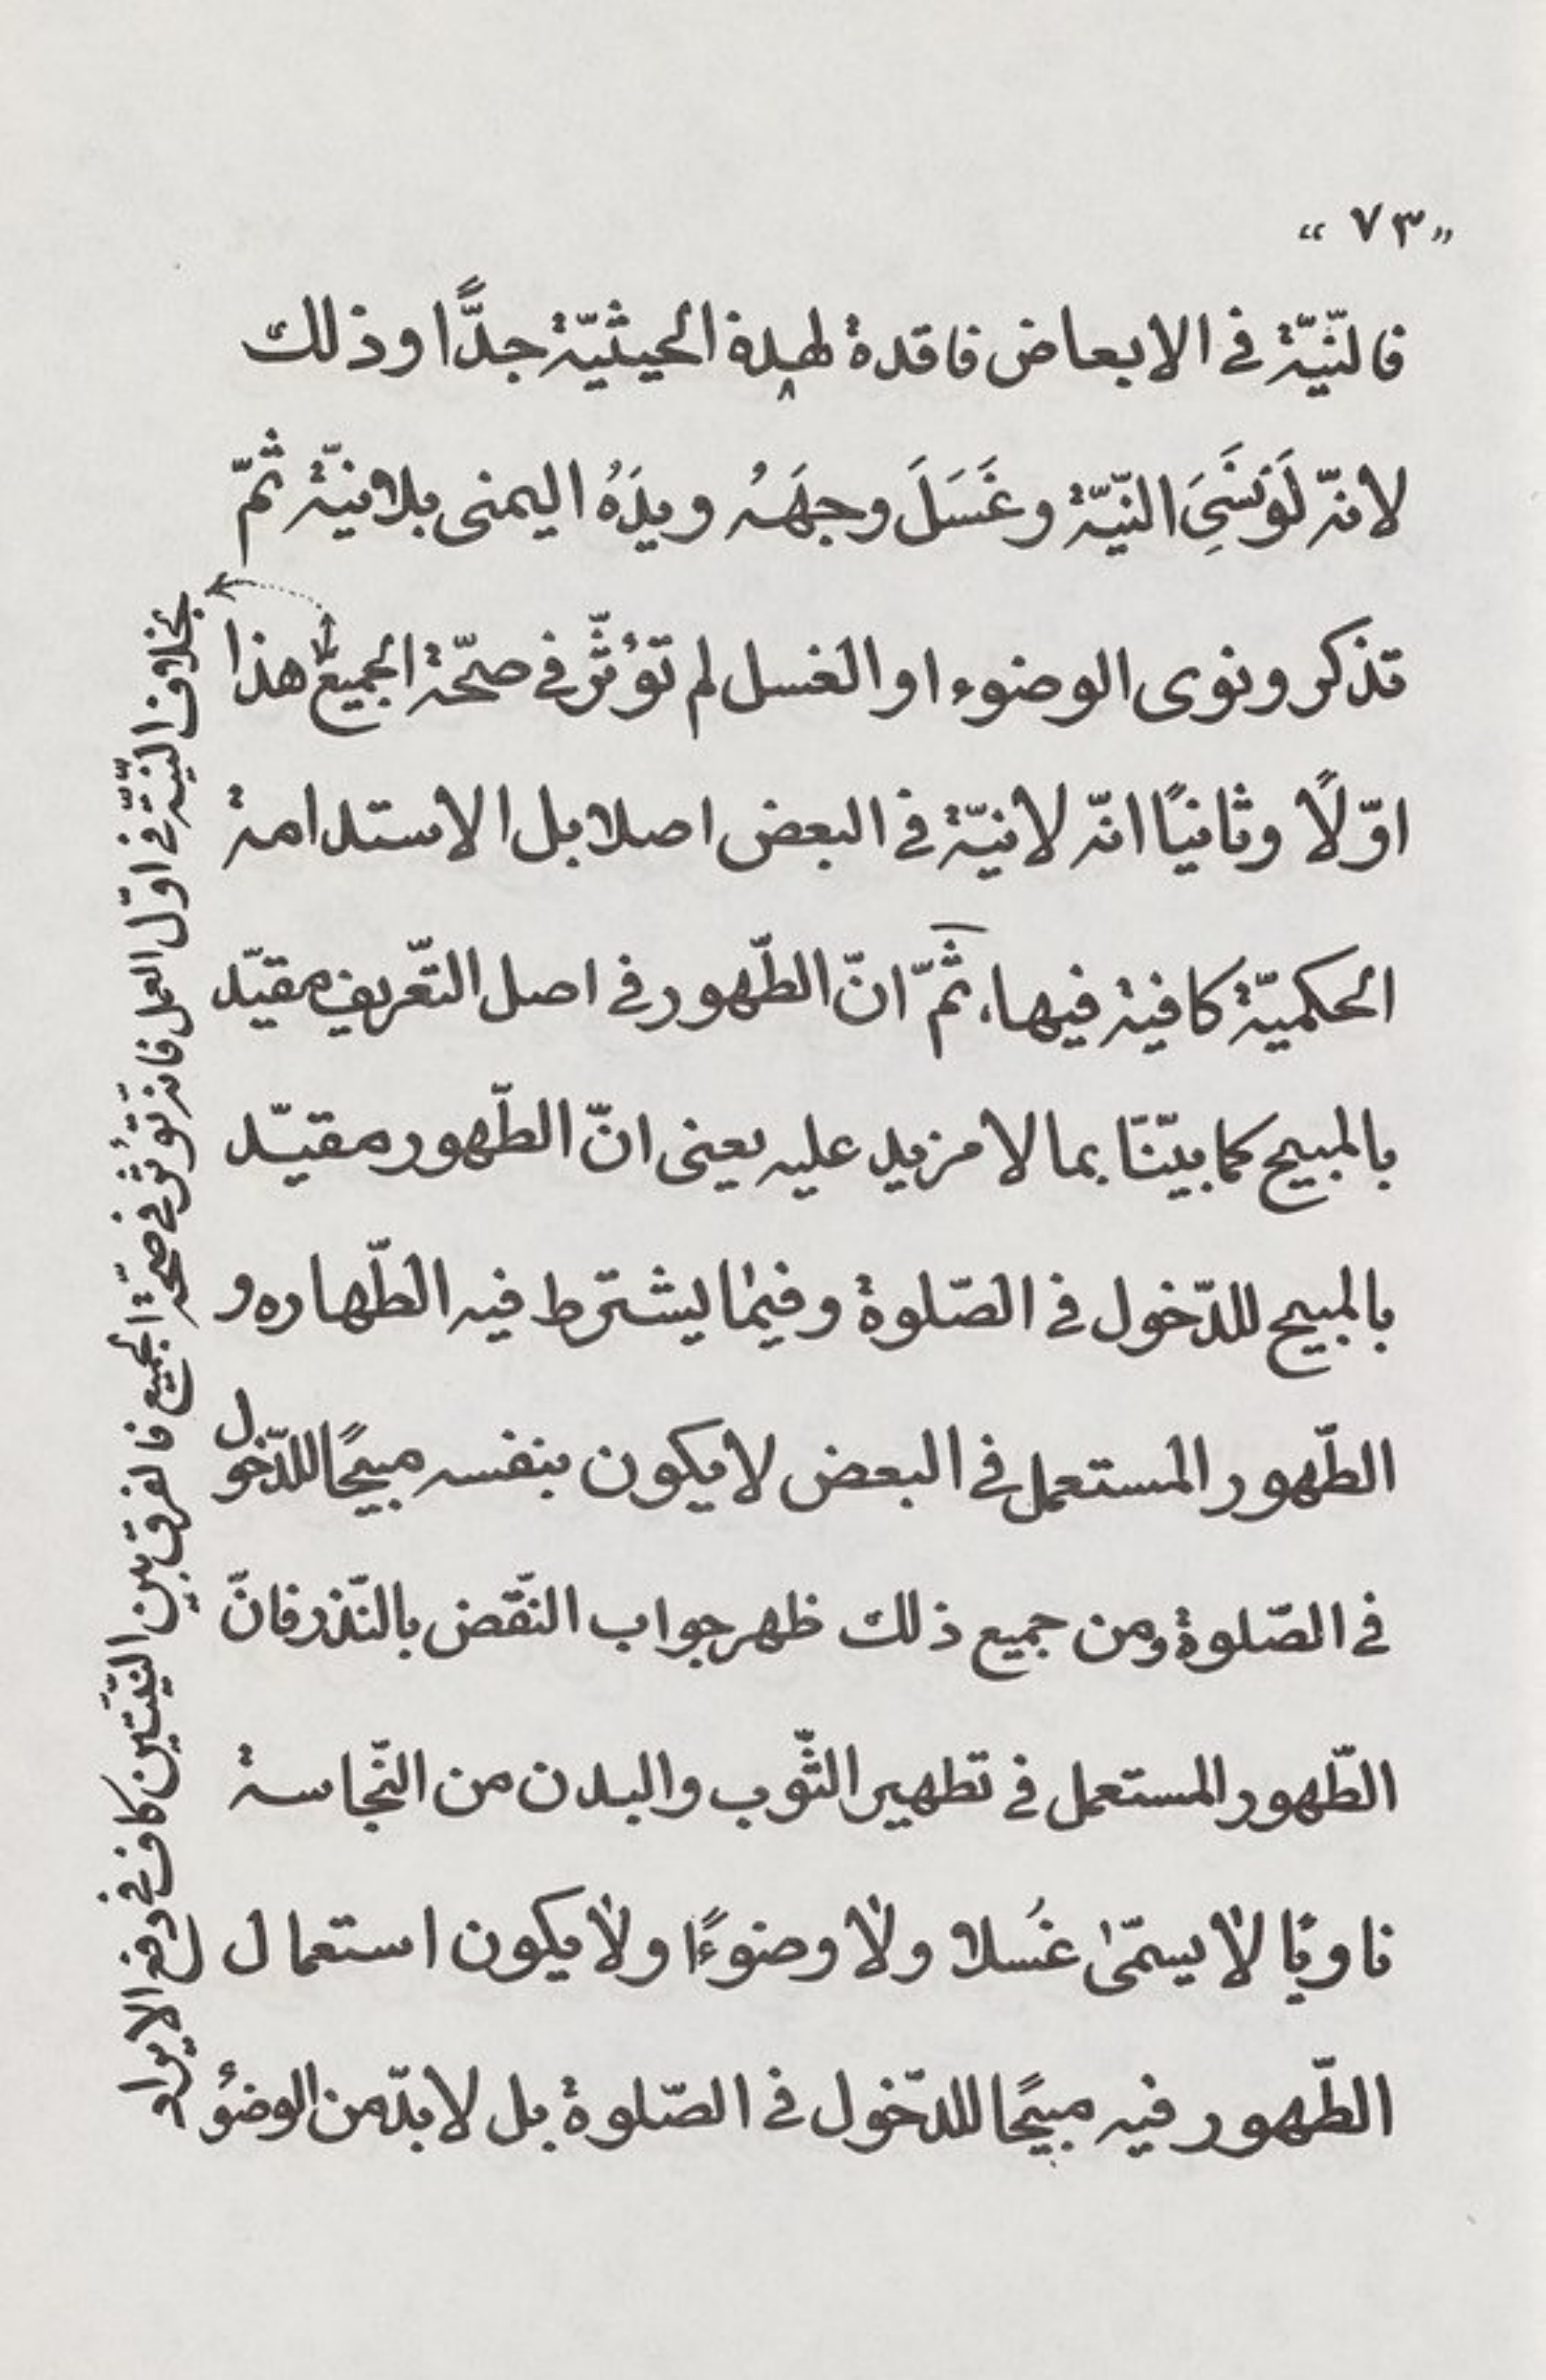 «٧٣»
فالنّيّة فى الابعاض فاقدة لهذة الحيثيّة جدًّا وذلك
لانّه لَوْ نَسَِىَ النّيّة وغَسَلَ وجهَهُ ويدَهُ اليمنى بلانيّة ثمّ
تذكر ونوى الوضوء او الغسل لم تؤثّر فى صحّة الجميع هذا
اوّلًا وثانيًا انّه لانيّة فى البعض اصلا بل الاستدامة
الحكميّة كافية فيها، ثمّ انّ الطّهور فى اصل التّعريف مقيّد
بالمبيح كما بيّنّا بما لا مزيد عليه يعنى انّ الطّهور مقيّد
بالمبيح للدّخول فى الصّلوة وفيما يشترط فيه الطّهاره و
الطّهور المستعمل فى البعض لايكون بنفسه مبيحًا للدّخول
فى الصّلوة ومن جميع ذلك ظهر جواب النّقض بالنّذر فانّ
الطّهور المستعمل فى تطهير الثّوب والبدن من النّجاسة
ناويًا لا يسمّى غُسلا ولا وضوءًا ولا يكون استعمال
الطّهور فيه مبيحًا للدّخول فى الصّلوة بل لابدّ من الوضوُ
بخلاف النّيّة فى اوّل العمل فانّه تؤثّر فى صحّة الجميع فالفرق بين النّيّتين كاف فى دفع الايراد